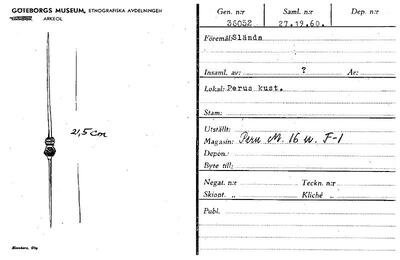 GÖTEBORGS MUSEUM, ETNOGRAFISKA AVDELNINGEN
ARKEOL.
21,5 cm
Gen. n:r Saml. n:r Dep. n:r
36052 27.19.60.
Föremål: Slända
Insaml. av: ? År:
Lokal: Perus kust.
Stam:
Utställt:
Magasin: Peru M. 16 u. F-1
Depon.:
Byte till:
Negat. n:r Teckn. n:r
Skiopt. „ Kliché „
Publ.